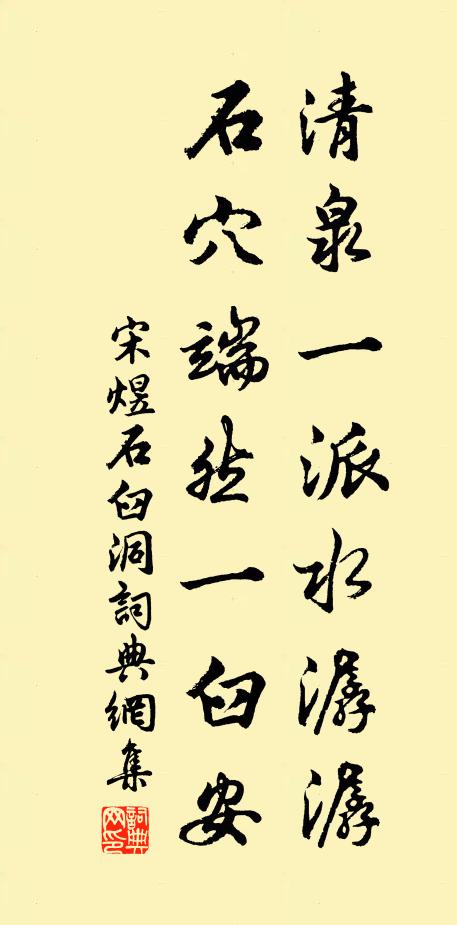 清泉一派水潺潺
石穴端然一臼安
宋煜石臼洞詞典網集
詞典
网印